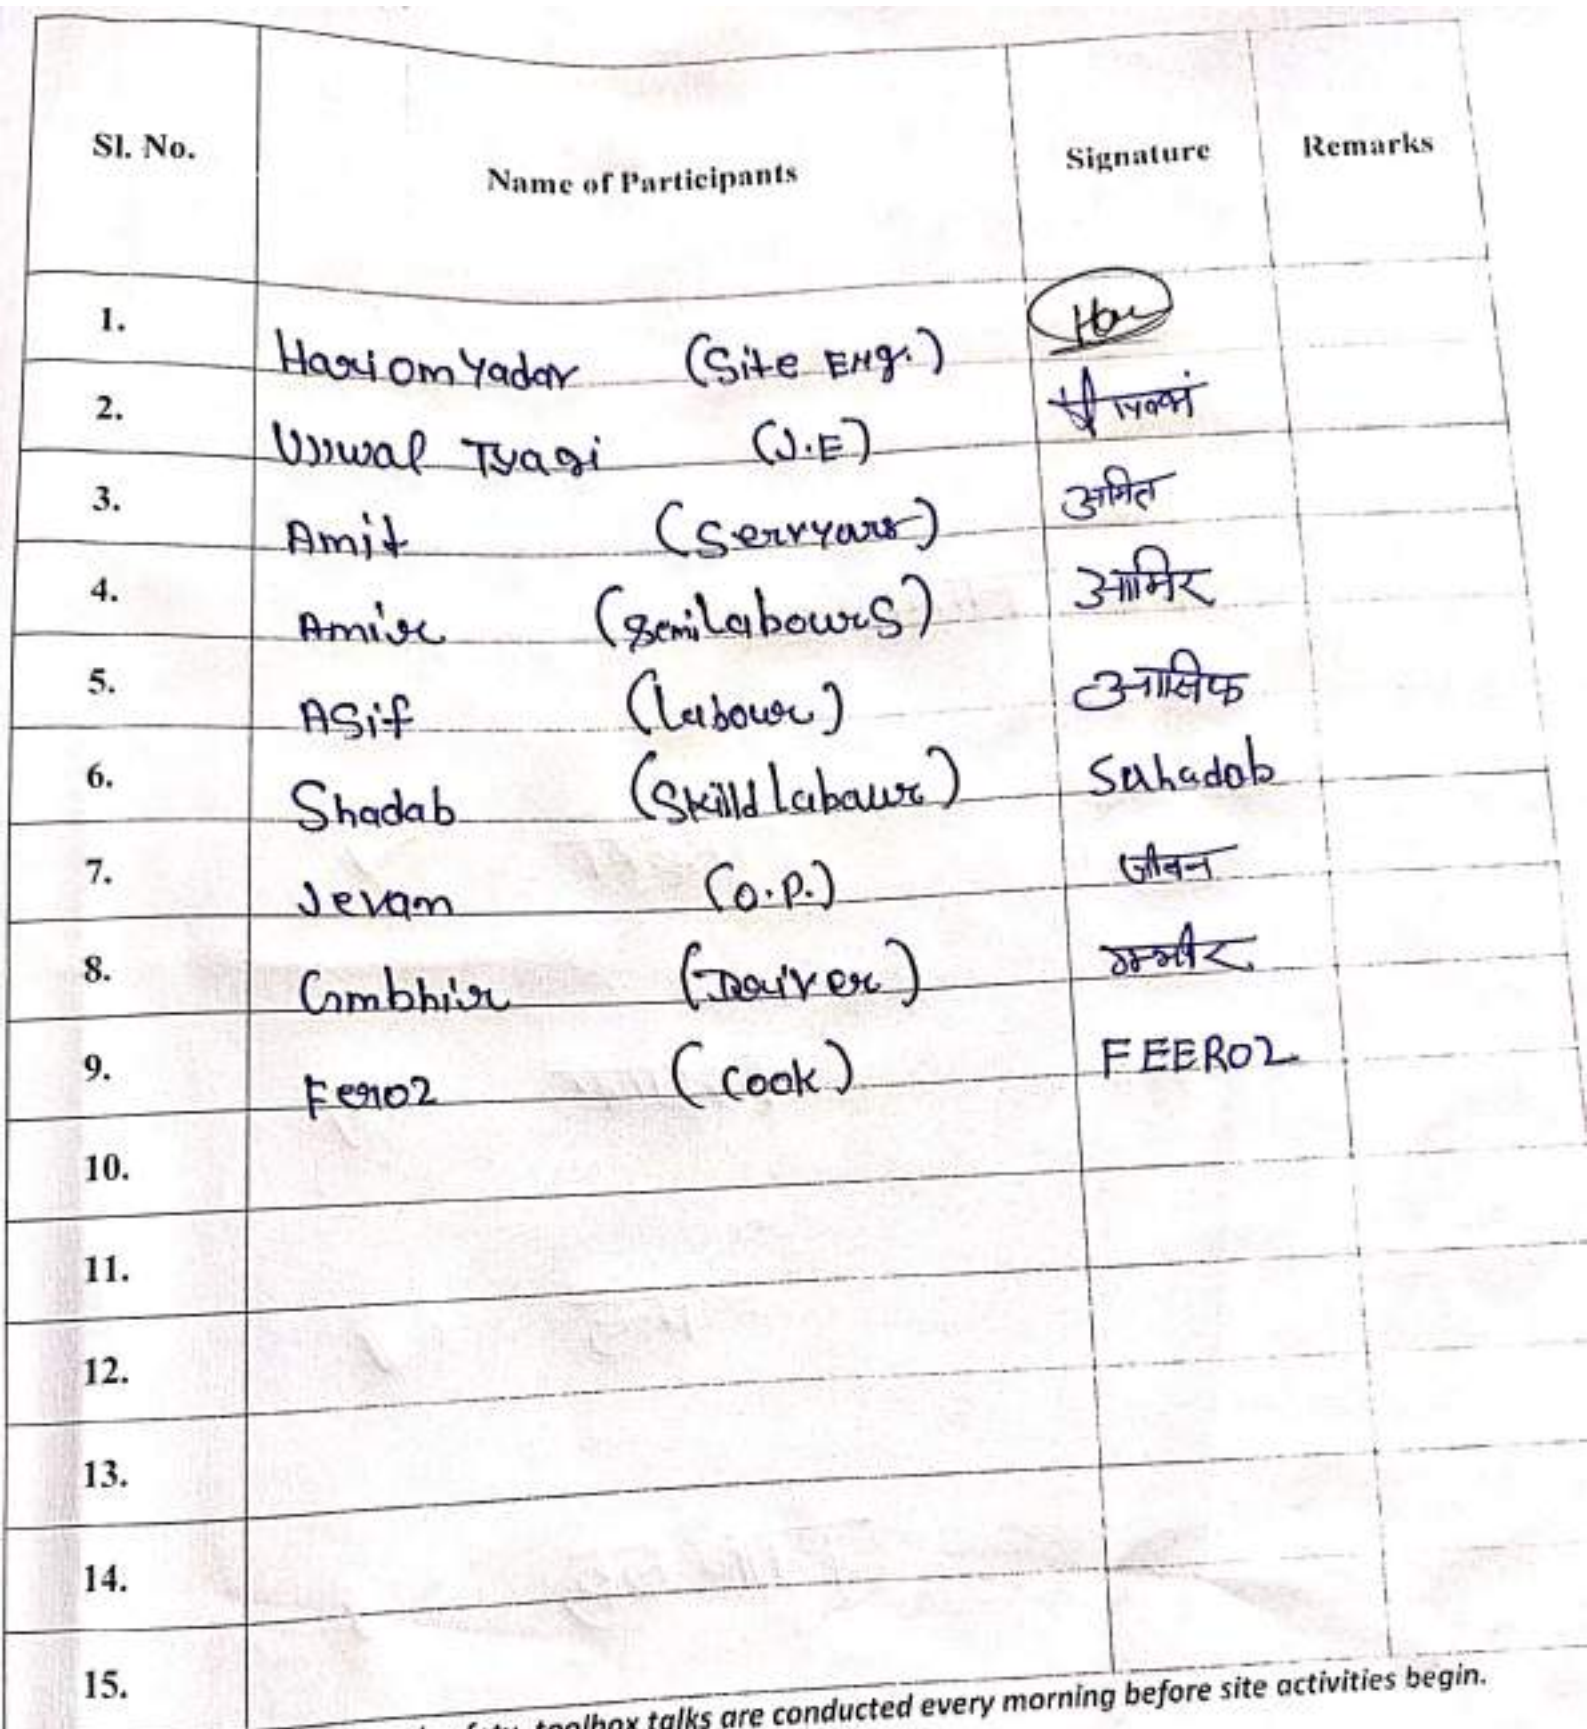 Sl. No. Name of Participants Signature Remarks
1. Hariom Yadav (Site Eng.) Hari
2. Ujjwal Tyagi (J.E)
3. Amit (Servyour) अमित
4. Amir (Semi Labours) आमिर
5. ASif (Labour) आसिफ
6. Shadab (Skilld Labour) Sahadab
7. Jevan (O.P.) जीवन
8. Gmbhir (Driver) गम्भीर
9. Feroz (Cook) FEEROZ
10.
11.
12.
13.
14.
15.
toolbox talks are conducted every morning before site activities begin.